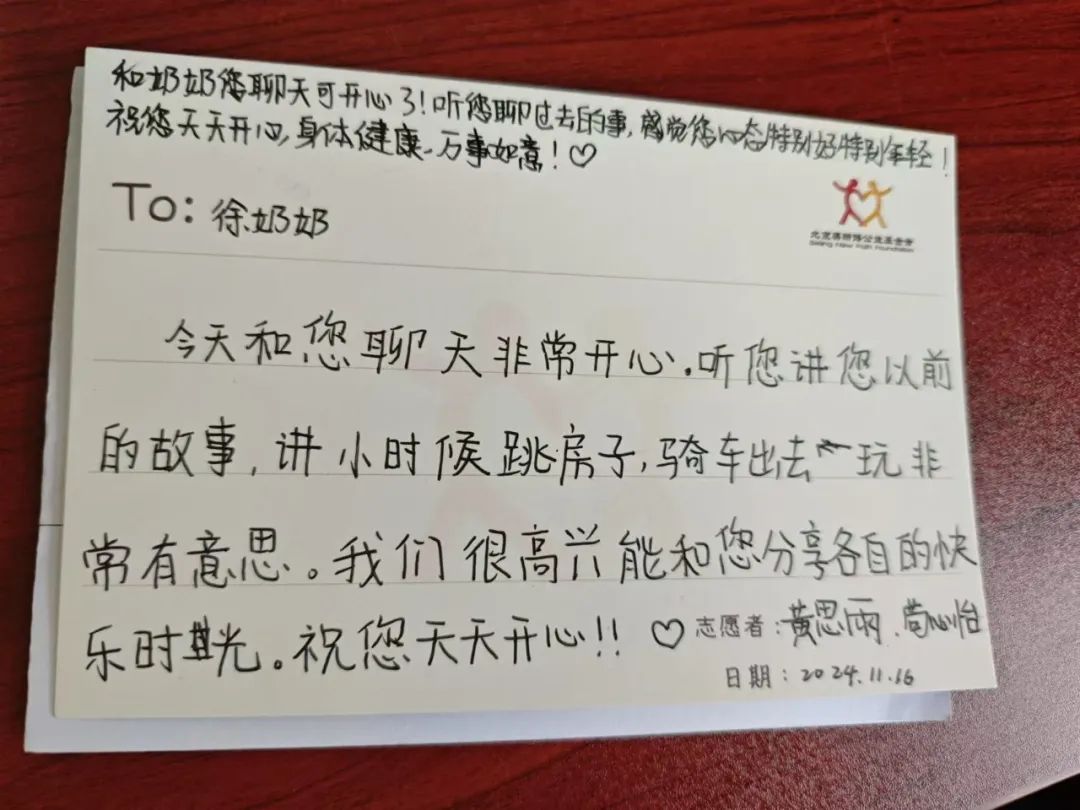 和奶奶您聊天可开心了!听您聊过去的事,感觉您心态特别好特别年轻!
祝您天天开心,身体健康、万事如意!♡
To: 徐奶奶
北京新研博公益基金会
Beijing New Path Foundation
今天和您聊天非常开心.听您讲您以前
的故事,讲小时候跳房子,骑车出去玩非
常有意思。我们很高兴能和您分享各自的快
乐时光。祝您天天开心!! ♡ 志愿者:黄思雨、苟心怡
日期:2024.11.16